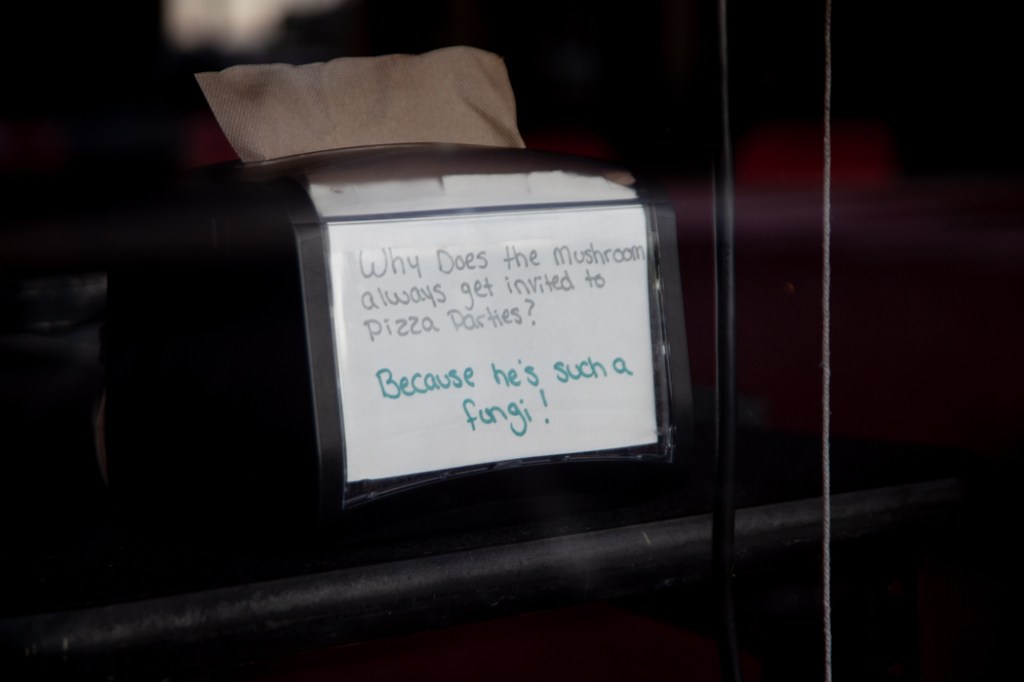 Why Does the Mushroom
always get invited to
Pizza Parties?
Because he's such a
fungi!